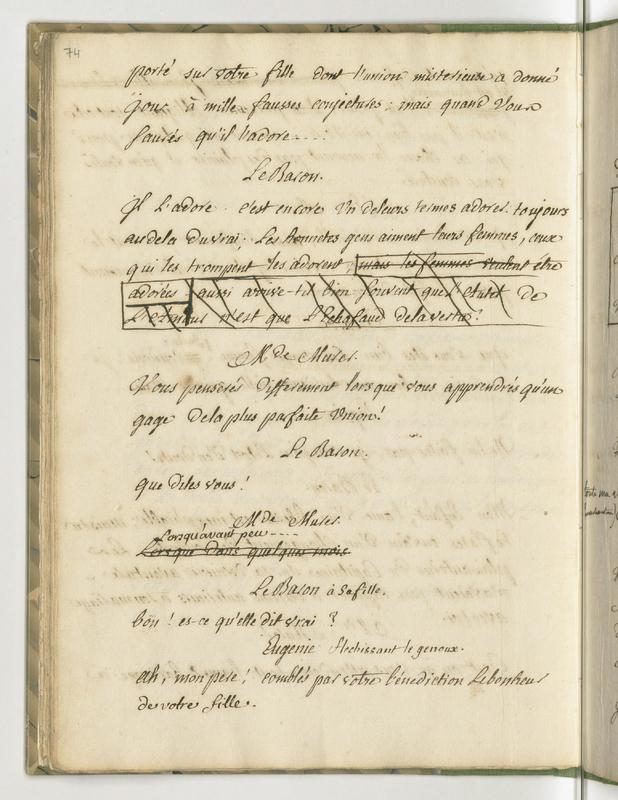 74
porté sur votre fille dont l'union misterieuse a donné
jour à mille fausses conjectures : mais quand vous
saurés qu'il l'adore ....:
Le Baron.
Il l'adore. c'est encore un de leurs termes adorer. toujours
au dela du vrai. Les honnetes gens aiment leurs femmes, ceux
qui les trompent les adorent, mais les femmes veulent être
adorées aussi arrive-t-il bien souvent que l'Autel de
n'est que l'Echafaud de la vertu ?
Mde Murer.
Vous penserés differement lorsque vous apprendrés qu'un
gage de la plus parfaite Union!
Le Baron.
que dites vous !
Mde Murer.
Lorsqu'avant peu ----
Lorsque dans quelques mois.
Le Baron à sa fille.
bon ! es-ce qu'elle dit vrai ?
Eugenie flechissant le genoux.
Ah, mon pere ! comblés par votre bénediction le bonheur
de votre fille.